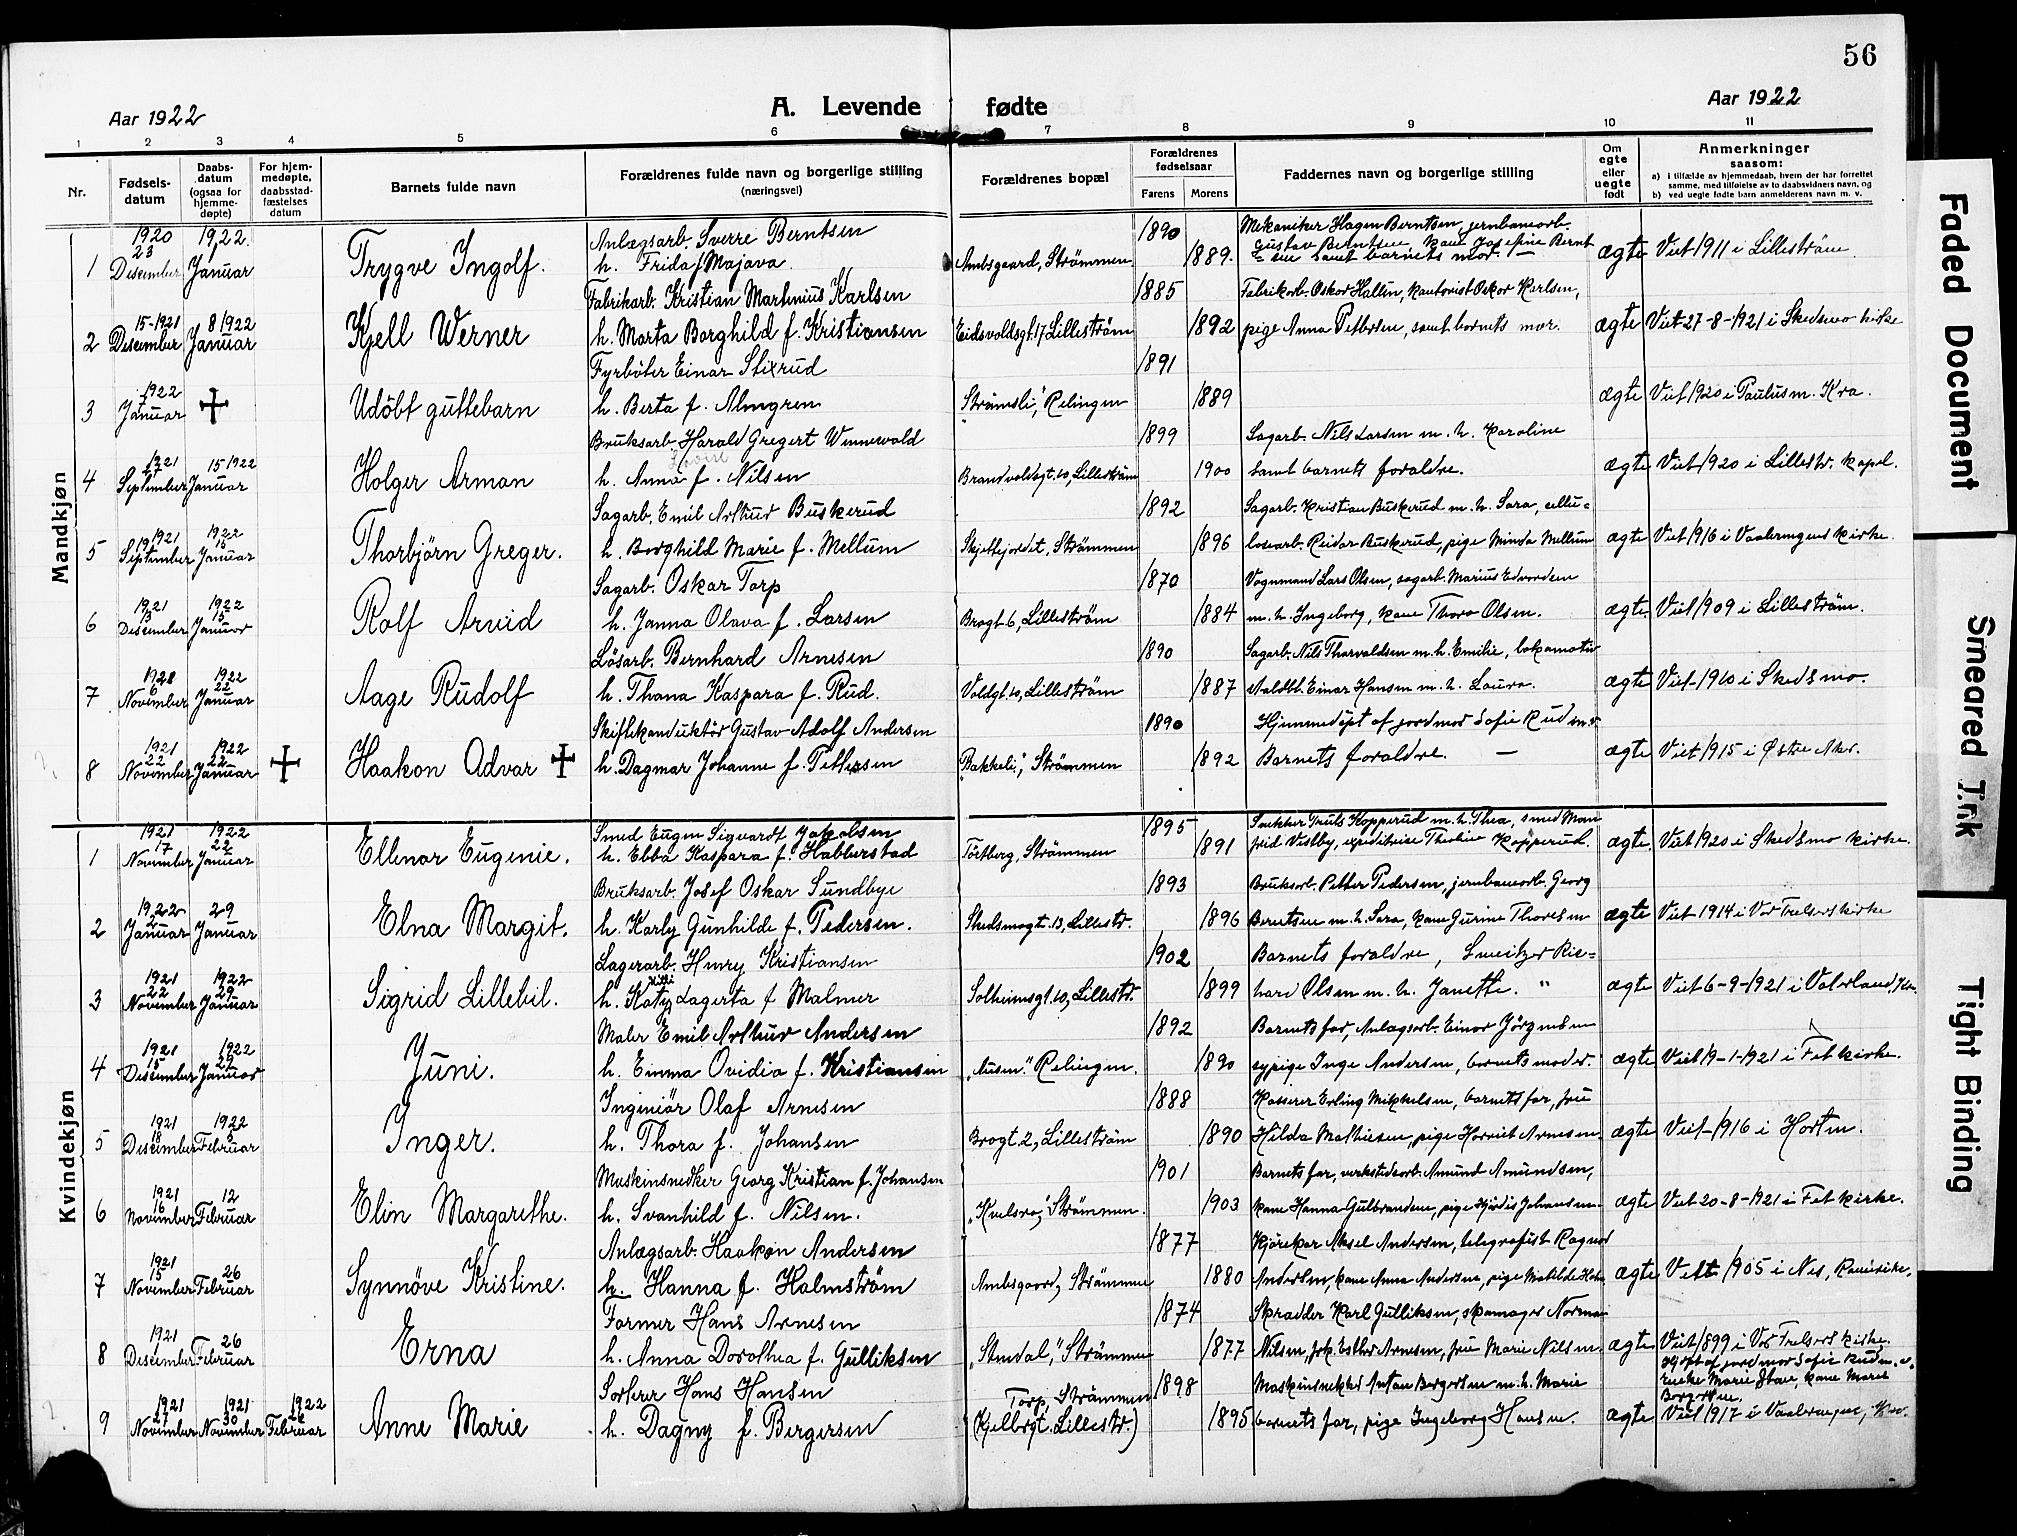 56
Aar 1922
A. Levende fødte
Aar 1922
1 2 3 4 5 6 7 8 9 10 11
Nr.
Fødselsdatum
Daabsdatum (ogsaa for hjemmedøpte)
For hjemmedøpte, daabsstadfæstelses datum
Barnets fulde navn
Forældrenes fulde navn og borgerlige stilling (næringsvei)
Forældrenes bopæl
Forældrenes fødselsaar
Farens Morens
Faddernes navn og borgerlige stilling
Om egte eller uegte født
Anmerkninger saasom:
a) i tilfælde av hjemmedaab, hvem der har forrettet samme, med tilføielse av to daabsvidners navn, og
b) ved uegte fødte barn anmelderens navn m. v.
Mandkjøn
1920 1922 Anlægsarb. Sverre Berntsen 1890 Mekaniker Hagen Berntsen, jernbanearb.
1 23 Desember Januar Trygve Ingolf. h. Frida f. Majava. Ambsgaard, Strömmen 1889. Gustav Berntsen, kone Josefine Berntsen samt barnets mor. ægte Viet 1911 i Lilleström.
Fabrikarb. Kristian Martinius Karlsen 1885 Fabrikarb. Oskar Hallin, kontorist Oskar Karlsen,
2 15-1921 Desember 8 1922 Januar Kjell Werner h. Marta Borghild f. Kristiansen Eidsvoldsgt. 17 Lilleström 1892 pige Anna Pettersen, samt barnets mor. ægte Viet 27-8-1921 i Skedsmo kirke
Fyrböter Einar Stixrud 1891
3 1922 Januar Udöbt guttebarn h. Berta f. Almgren "Strömsli", Relingen 1889 ægte Viet 1920 i Paulus m. Kra.
Bruksarb. Harald Gregert Wennevold 1899 Sagarb. Nils Larsen m. h. Karoline
4 1921 September 15 1922 Januar Holger Arman h. Anna f. Nilsen Brandvoldsgt. 10, Lilleström 1900 samt barnets forældre. ægte Viet 1920 i Lillestr. kapel.
Sagarb. Emil Arthur Buskerud 1892 Sagarb. Kristian Buskerud m. h. Sara, cellu-
5 19 1921 September 1922 15 Januar Thorbjörn Greger. h. Borghild Marie f. Mellum Skjettefjordet, Strömmen 1896 losearb. Reidar Buskerud, pige Minda Mellum ægte Viet 1916 i Vaalerengens kirke.
Sagarb. Oskar Torp 1870 Vognmand Lars Olsen, sagarb. Marius Edvardsen
6 1921 13 Desember 1922 15 Januar Rolf Arvid h. Janna Olava f. Larsen Brogt. 6, Lilleström 1884 m. h. Ingeborg, kone Thora Olsen. ægte. Viet 1909 i Lilleström.
Lösarb. Bernhard Arnesen 1890 Sagarb. Nils Thorvaldsen m. h. Emilie, lokomotiv
7 1921 6 November 1922 22 Januar Aage Rudolf h. Thana Kaspara f. Rud. Voldgt. 10, Lilleström 1887 Einar Hansen m. h. Laura. ægte Viet 1910 i Skedsmo.
Skiftekonduktör Gustav Adolf Andersen 1890 Hjemmedöpt af jordmor Sofie Rud
8 1921 22 November 1922 22 Januar Haakon Advar h. Dagmar Johanne f. Pettersen "Bakkeli", Strömmen 1892 Barnets forældre. — ægte Viet 1915 i Østre Aker.
Kvindekjøn
Smed Eugen Sigvardt Jakobsen 1895 Snekker Truls Kopperud m. h. Thea, smed Man-
1 1921 17 November 1922 22 Januar Ellenor Eugenie. h. Ebba Kaspara f. Habberstad Törtberg, Strömmen 1891 fred Vestby, expeditrise Kopperud. ægte. Viet 1920 i Skedsmo kirke.
Bruksarb. Josef Oskar Sundbye 1893 Bruksarb. Petter Pedersen, jernbanearb. Georg
2 1922 2 Januar 29 Januar Elna Margit. h. Karly Gunhilde f. Pedersen. Skedsmogt. 13, Lillestr. 1896 Berntsen m. h. Sara, kone Gurine Thoresen ægte Viet 1914 i Vor Frelsers kirke
Lagerarb. Henry Kristiansen 1902 Barnets forældre, Sweitzer Rie-
3 1921 22 November 1922 29 Januar Sigrid Lillebil. h. Katy Lagerta f. Malmer Solheimsgt. 10, Lillestr. 1899 hard Olsen m. h. Janette. " ægte Viet 6-9-1921 i Vaterland,
Maler Emil Arthur Andersen 1892 Barnets far, Anlægsarb. Einar Jörgensen
4 1921 15 Desember 1922 29 Januar Juni. h. Emma Ovidia f. Kristiansen "Ausen". Relingen. 1890 sypige Inga Andersen, barnets moder. ægte Viet 19-1-1921 i Fet kirke.
Ingeniör Olaf Arnesen 1888 Kasserer Erling Mikkelsen, barnets far, fru
5 1921 18 Desember 1922 2 Februar Inger. h. Thora f. Johansen Brogt. 2, Lilleström 1890 Hilda Mathiesen, pige Harriet Arnesen. ægte Viet 1916 i Horten.
Maskinsnedker Georg Kristian f. Johansen 1901 Barnets far, verkstedsarb. Amund Amundsen,
6 1921 16 November 12 Februar Elin Margarethe. h. Svanhild f. Nilsen. Strömmen. 1903 kone Hanna Gulbrandsen, pige Hjördis Johansen. ægte Viet 20-8-1921 i Fet kirke.
Anlægsarb. Haakon Andersen 1877 Kjörekar Aksel Andersen, telegrafist Ragnar
7 1921 15 November 26 Februar Synnöve Kristine. h. Hanna f. Holmström Ambsgaard, Strömmen 1880 Andersen, kone Anna Andersen, pige Matilde ægte Viet 1905 i Nes, Romerike.
Former Hans Arnesen 1874 Skrædder Karl Gulliksen, skomager Norman
8 1921 Desember 26 Februar Erna h. Anna Dorothea f. Gulliksen "Stendal", Strömmen 1877 Nilsen, frk. Esther Arnesen, fru Marie Nilsen. ægte Viet 1899 i Vor Frelsers kirke.
Sorterer Hans Hansen Torp, Strömmen 1898 Maskinsnekker Anton Bergersen m. h. Marie döpt af jordmor Sofie Rud enke Marie kone Marie Bergersen.
9 1921 27 November 1921 30 November 1922 26 Februar Anne Marie h. Dagny f. Bergersen (Kjelbrgt. Lillestr.) 1895 barnets far, pige Ingeborg Hansen. ægte Viet 1917 i Vaalerengen,
Faded Document
Smeared Ink
Tight Binding